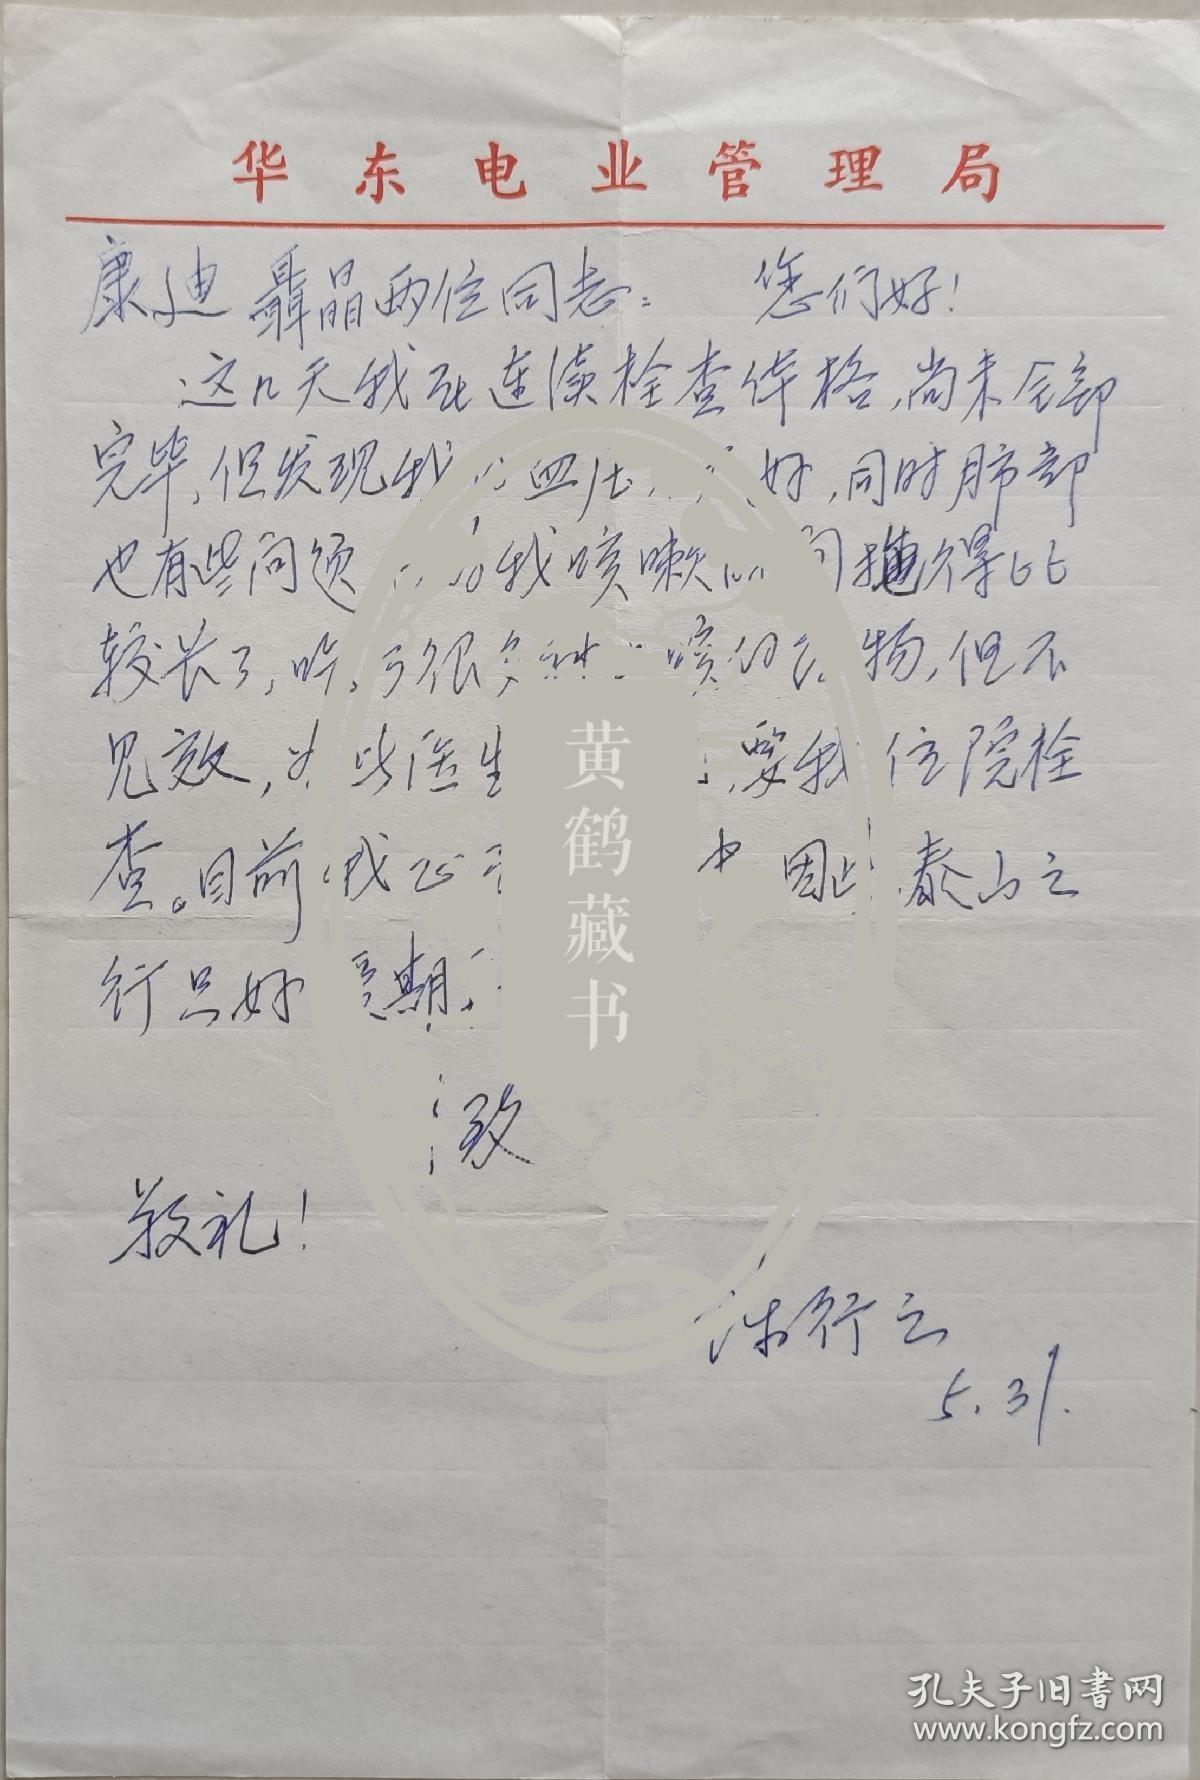 华东电业管理局
康迪 聂晶两位同志: 您们好!
这几天我在连续检查体格,尚未全部
完毕,但发现我 血压 好,同时肺部
也有些问题 我咳嗽 间拖得比
较长了, 很多种 咳的 物,但不
见效, 为此医生 要我住院检
查。目前我正 中 因此泰山之
行只好 期,
致
敬礼!
陈行之
5.31.
黄鹤藏书
孔夫子旧书网
www.kongfz.com